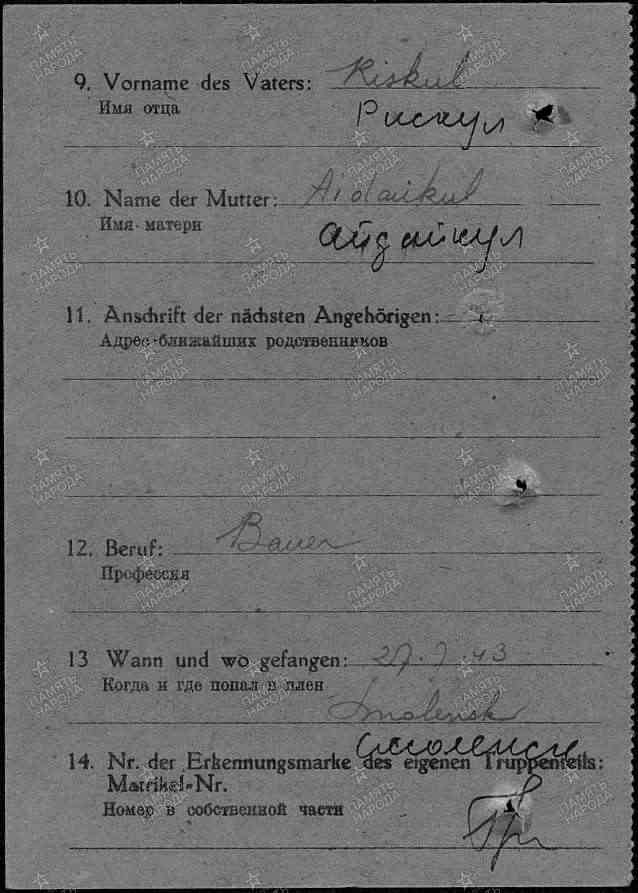 9. Vorname des Vaters: Riskul
Имя отца
Рискул
10. Name der Mutter: Aidaikul
Имя матери
Айдайкул
11. Anschrift der nächsten Angehörigen:
Адрес ближайших родственников
12. Beruf: Bauer
Профессия
13 Wann und wo gefangen: 27.7.43
Когда и где попал в плен
Smolensk
Смоленск
14. Nr. der Erkennungsmarke des eigenen Truppenteils:
Matrikel-Nr.
Номер в собственной части
ПАМЯТЬ НАРОДА